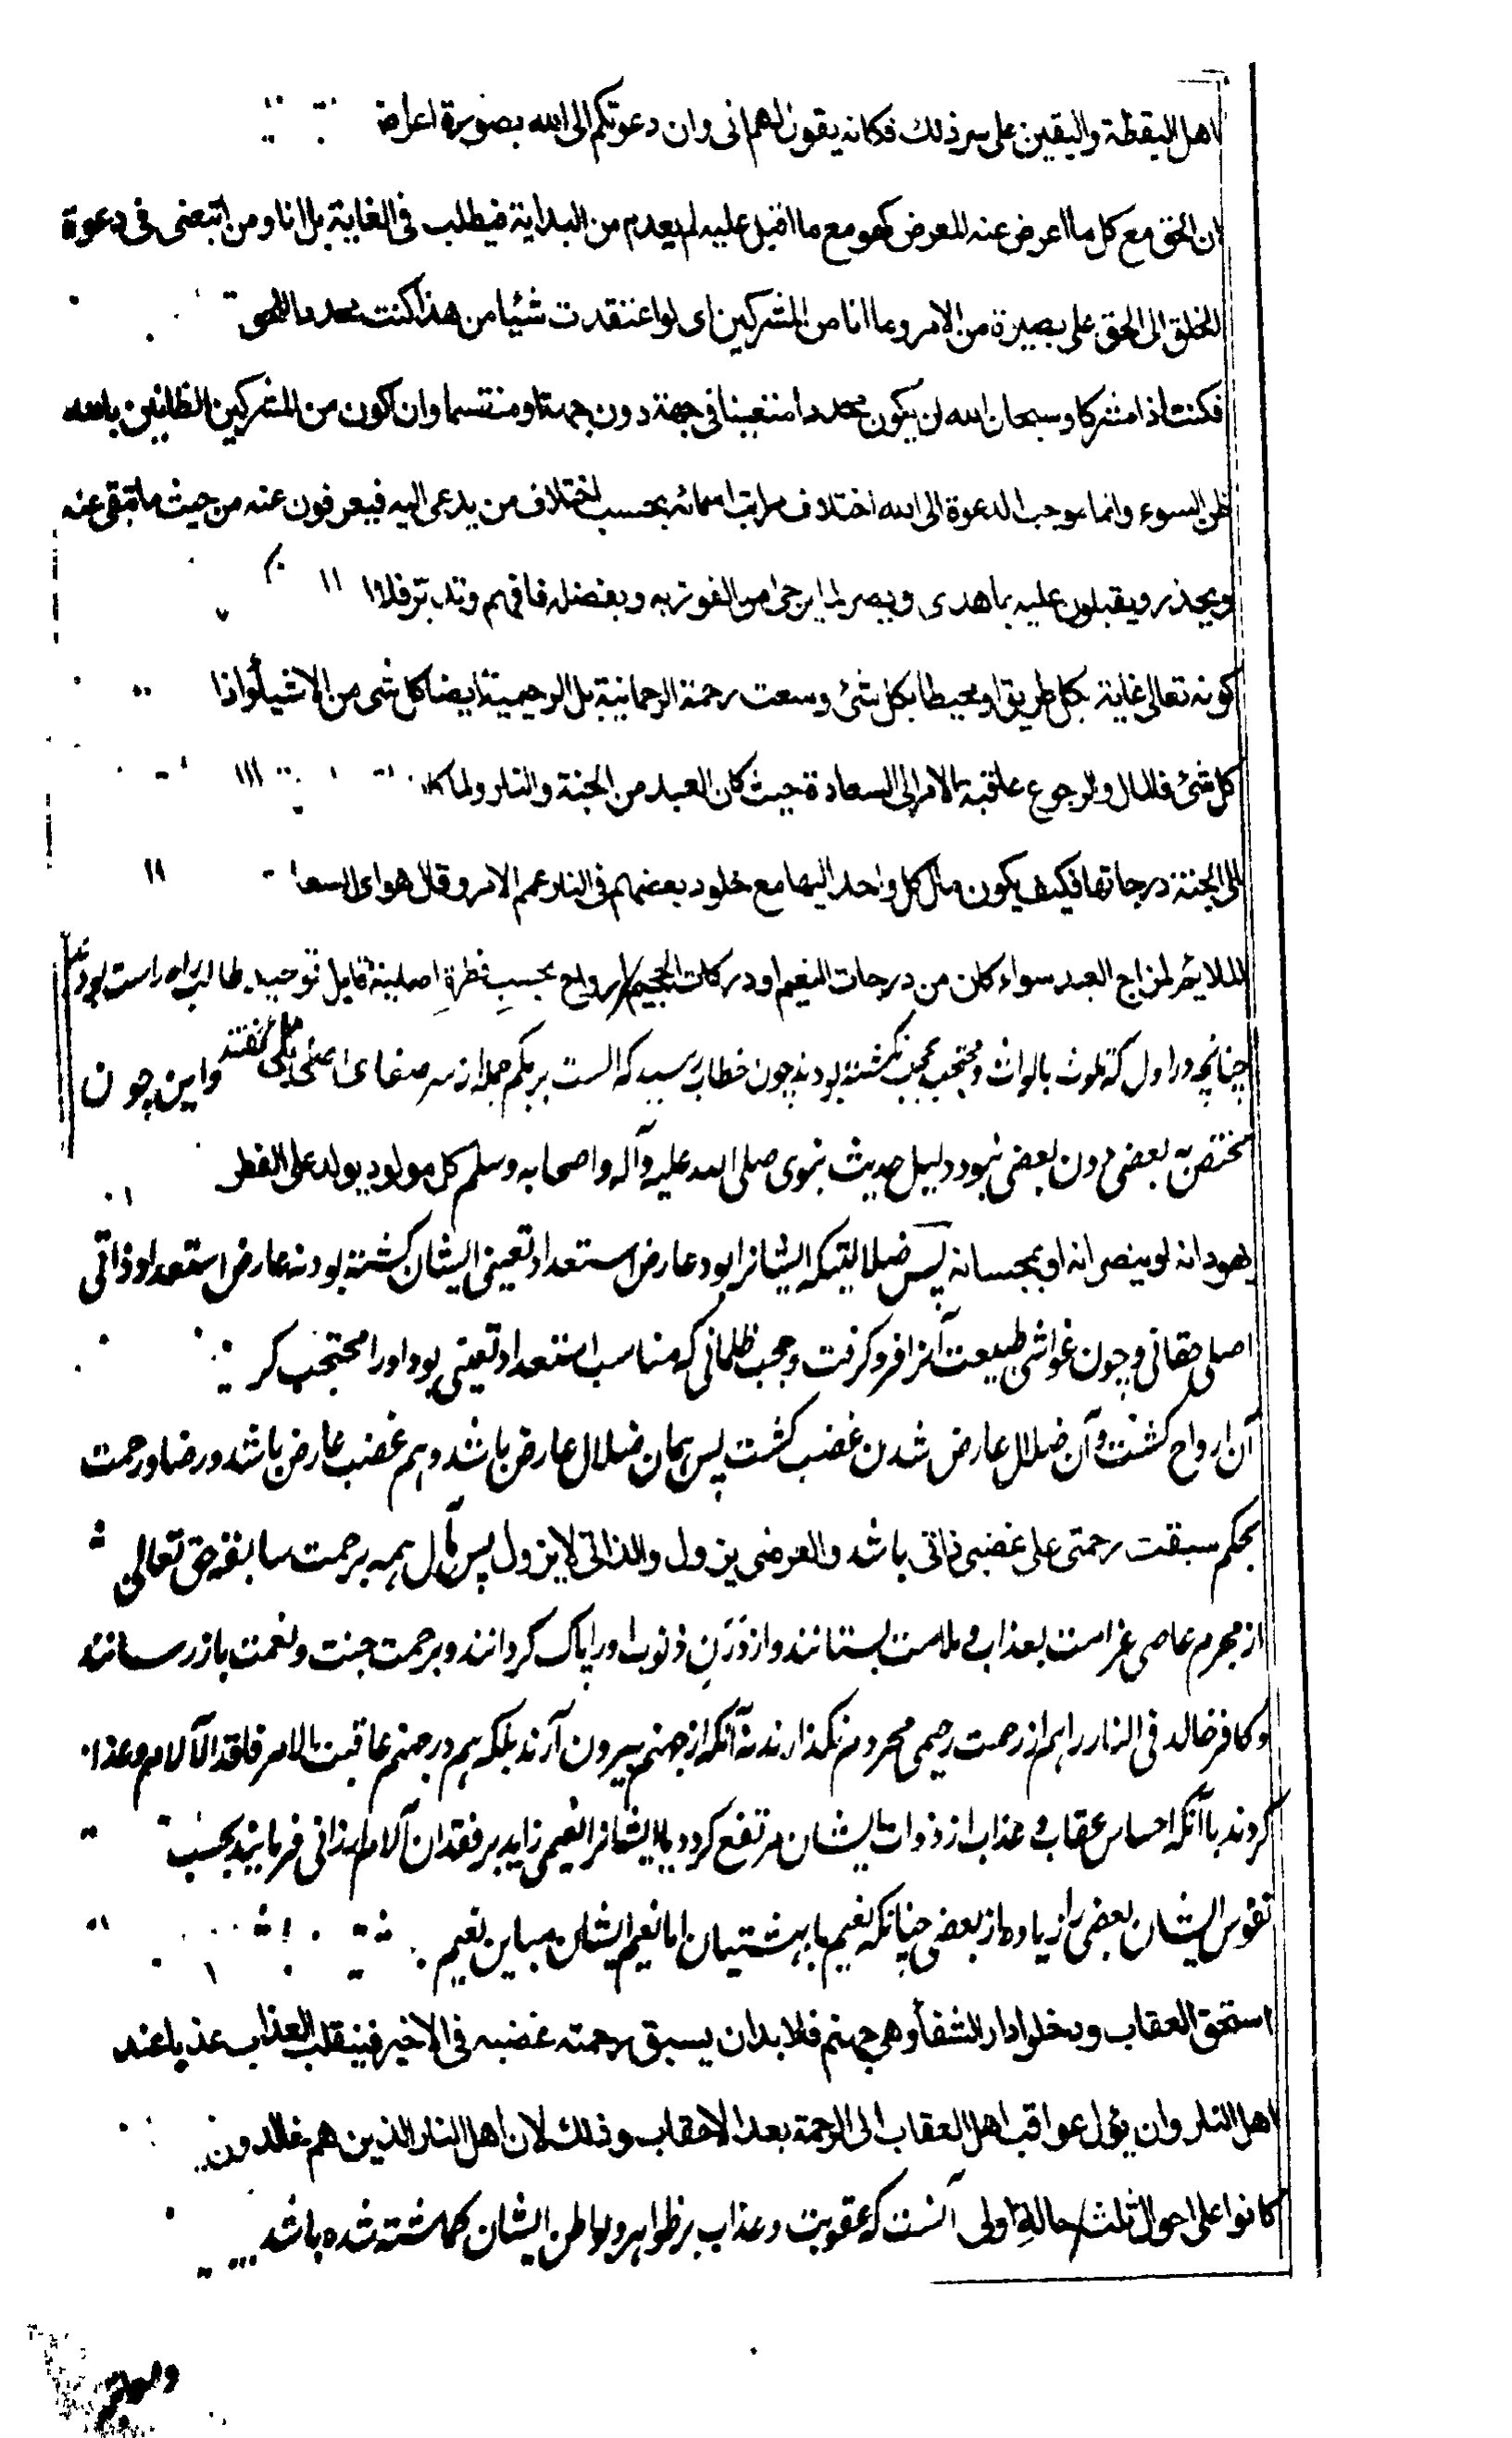 اهل اليقظة واليقين على سر ذلك فكانه يقول لهم انى وان دعوتكم الى الله بصورة اعراض
ان الحق مع كل ما اعرض عنه المعرض كهو مع ما اقبل عليه لم يعدم من البداية فيطلب فى الغاية بل انا ومن اتبعنى فى دعوة
الخلق الى الحق على بصيرة من الامر وما انا من المشركين اى لو اعتقدت شيئا من هذا كنت محددا للحق
فكنت اذا مشركا وسبحان الله ان يكون محددا متعينا فى جهة دون جهة او منقسما وان اكون من المشركين الظانين بالله
ظن السوء وانما موجب الدعوة الى الله اختلاف مراتب اسمائه بحسب اختلاف من يدعى اليه فيعرفون عنه من حيث ما يتقى عنه
ويحذر ويقبلون عليه بما هدى ويصر لما يرجى من الفوز به وبفضله فافهم وتدبر فلما
كونه تعالى غاية بكل طريق او محيطا بكل شئ وسعت رحمة الرحمانية بل الرحيمية ايضا كل شى من الاشياء واذا
كل شئ فالمال والرجوع عاقبة الامر الى السعادة حيث كان العبد من الجنة والنار ولما كان
الى الجنة درجاتها فكيف يكون مآل كل واحد اليها مع خلود بعضهم فى النار عمم الامر وقال هو اى السعا
الملايم لمزاج العبد سواء كان من درجات النعيم او دركات الجحيم ارواح بحسب فطرة اصلية قايل توحيد طالب راه راست بودند
چنانچه در اول كه تلوث بالواث و محتجب بحجب نگشته بودند چون خطاب رسيد كه الست بربكم جمله از سر صفاى اصلى بلى گفتند واين چون
مختص به بعضى دون بعضى نبود دليل حديث نبوى صلى الله عليه وآله واصحابه وسلم كل مولود يولد على الفطر
يهودانه او ينصرانه او يمجسانه پس ضلالتيكه ايشانرا بود عارض استعداد تعينى ايشان گشته بود نه عارض استعداد ذاتى
اصلى حقانى و چون غواشى طبيعت آنرا فرو گرفت و حجب ظلمانى كه مناسب استعداد تعينى بود اورا محتجب كر
آن ارواح گشت و آن ضلال عارض شدن غضب گشت پس همان ضلال عارض باشد و هم غضب عارض باشد و رضا و رحمت
بحكم سبقت رحمتى على غضبى ذاتى باشد والعرضى يزول والذاتى لا يزول پس مآل همه برحمت سابقه حق تعالى
از مجرم عاصى غرامت بعذاب و ملامت بستانند و از درن ذنوب اورا پاك گردانند و برحمت جنت و نعمت باز رسانند
و كافر خالد فى النار را هم از رحمت رحيمى محروم نگذارند نه آنكه از جهنم بيرون آرند بلكه هم در جهنم عاقبت الامر فاقد الآلام وعذاب
گردند با آنكه احساس عقاب و عذاب از ذوات ايشان مرتفع گردد يا ايشانرا نعيمى زايد بر فقدان آلام ارزانى فرمايند بحسب
نفوس ايشان بعضى را زياده از بعضى چنانكه نعيم با بهشتيان اما نعيم ايشان مباين نعيم
استحق العقاب ودخلوا دار الشقأ وهى جهنم فلا بد ان يسبق رحمته غضبه فى الاخير فينقلب العذاب عذبا عند
اهل النار وان يؤل عواقب اهل العقاب الى الرحمة بعد الاحقاب وذلك لان اهل النار الذين هم خالدون
كانوا على احوال ثلث حالة اولى آنست كه عقوبت وعذاب بر ظواهر و بواطن ايشان گماشته شده باشد